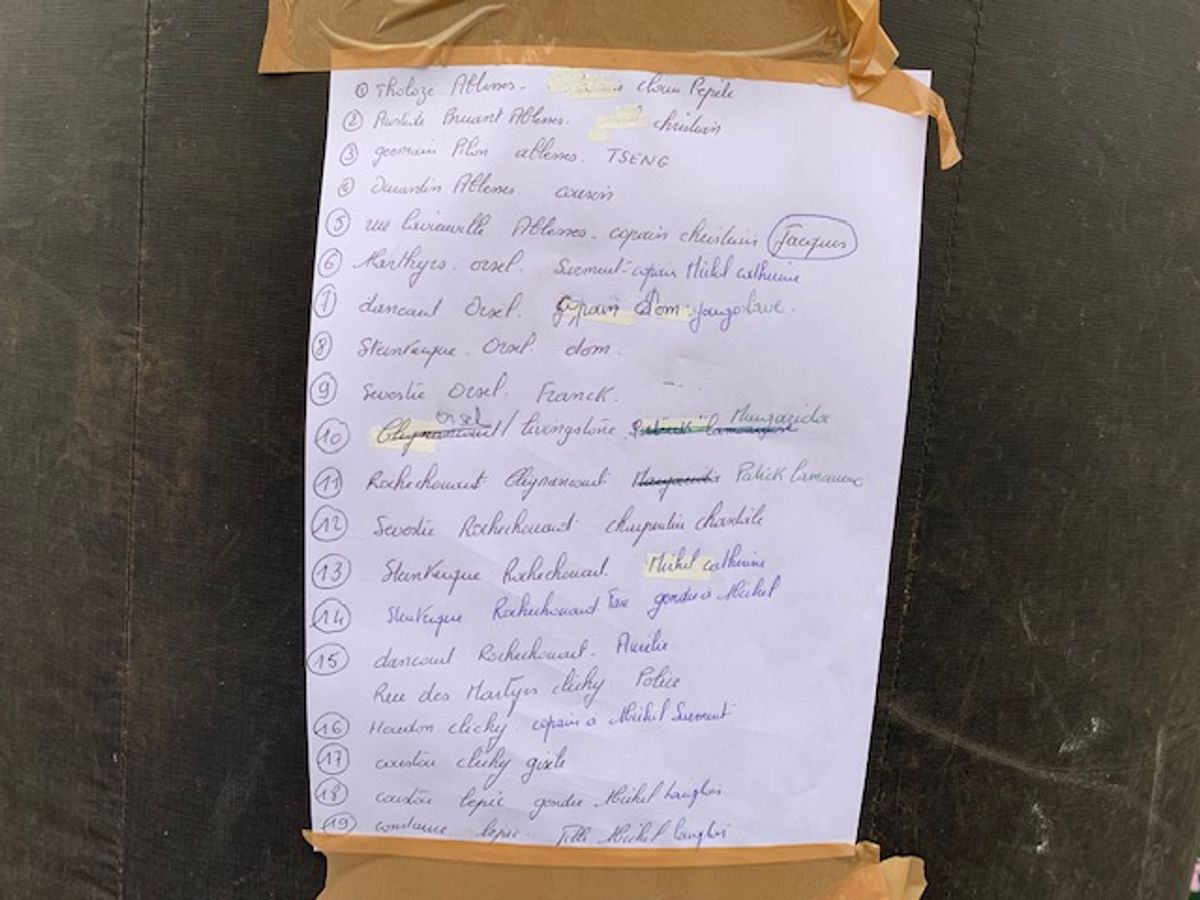 ① Tholozé Abbesses. Clown Pepite
② Aristide Bruant Abbesses. Christain
③ germain Pilon abbesses. TSENG
④ Durantin Abbesses. cousin
⑤ rue Lavieuville Abbesses. copain christain Jacques
⑥ Marthyrs. orsel. Surment copain Michel catherine
⑦ dancourt Orsel. copain dom yougoslave.
⑧ Steinkerque. Orsel. dom.
⑨ Sevestie Orsel. Franck.
⑩ Clignancourt orsel / Livingstone Patrick
⑪ Rochechouart Clignancourt Patick
⑫ Sevestie Rochechouart charpentier chantale
⑬ Steinkerque Rochechouart. Michel catherine
⑭ Steinkerque Rochechouart gendre à Michel
⑮ dancourt Rochechouart. Aurélie
Rue des Martyrs clichy Police
⑯ Houdon clichy. copain a Michel Surment
⑰ coustou clichy gisèle
⑱ coustou lepic gendre Michel Langlois
⑲ constance lepic. Fille Michel langlois